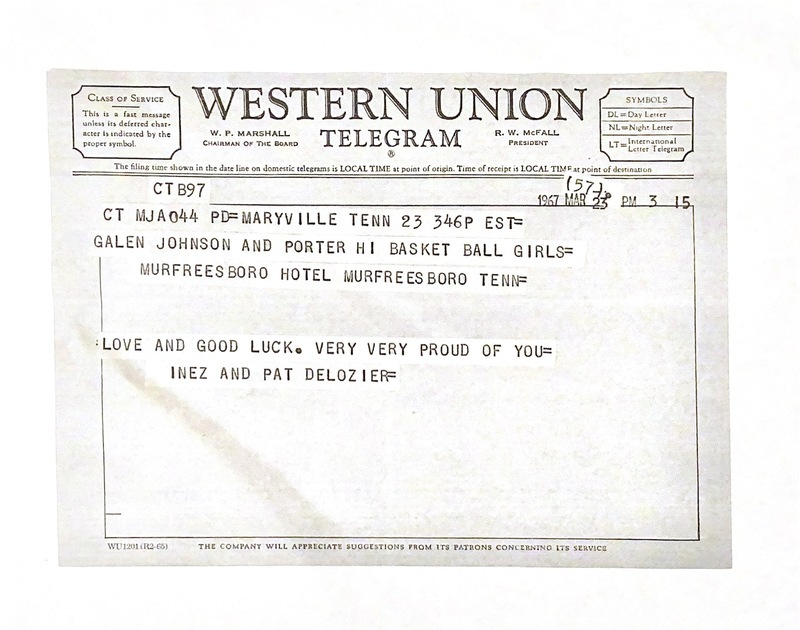 CLASS OF SERVICE
This is a fast message
unless its deferred char-
acter is indicated by the
proper symbol.
WESTERN UNION
TELEGRAM
®
W. P. MARSHALL
CHAIRMAN OF THE BOARD
R. W. McFALL
PRESIDENT
SYMBOLS
DL=Day Letter
NL=Night Letter
LT=International Letter Telegram
The filing time shown in the date line on domestic telegrams is LOCAL TIME at point of origin. Time of receipt is LOCAL TIME at point of destination
CTB97
(57).
1967 MAR 23 PM 3 15
CT MJA044 PD=MARYVILLE TENN 23 346P EST=
GALEN JOHNSON AND PORTER HI BASKET BALL GIRLS=
MURFREESBORO HOTEL MURFREESBORO TENN=
:LOVE AND GOOD LUCK. VERY VERY PROUD OF YOU=
INEZ AND PAT DELOZIER=
WU1201 (R2-65)
THE COMPANY WILL APPRECIATE SUGGESTIONS FROM ITS PATRONS CONCERNING ITS SERVICE